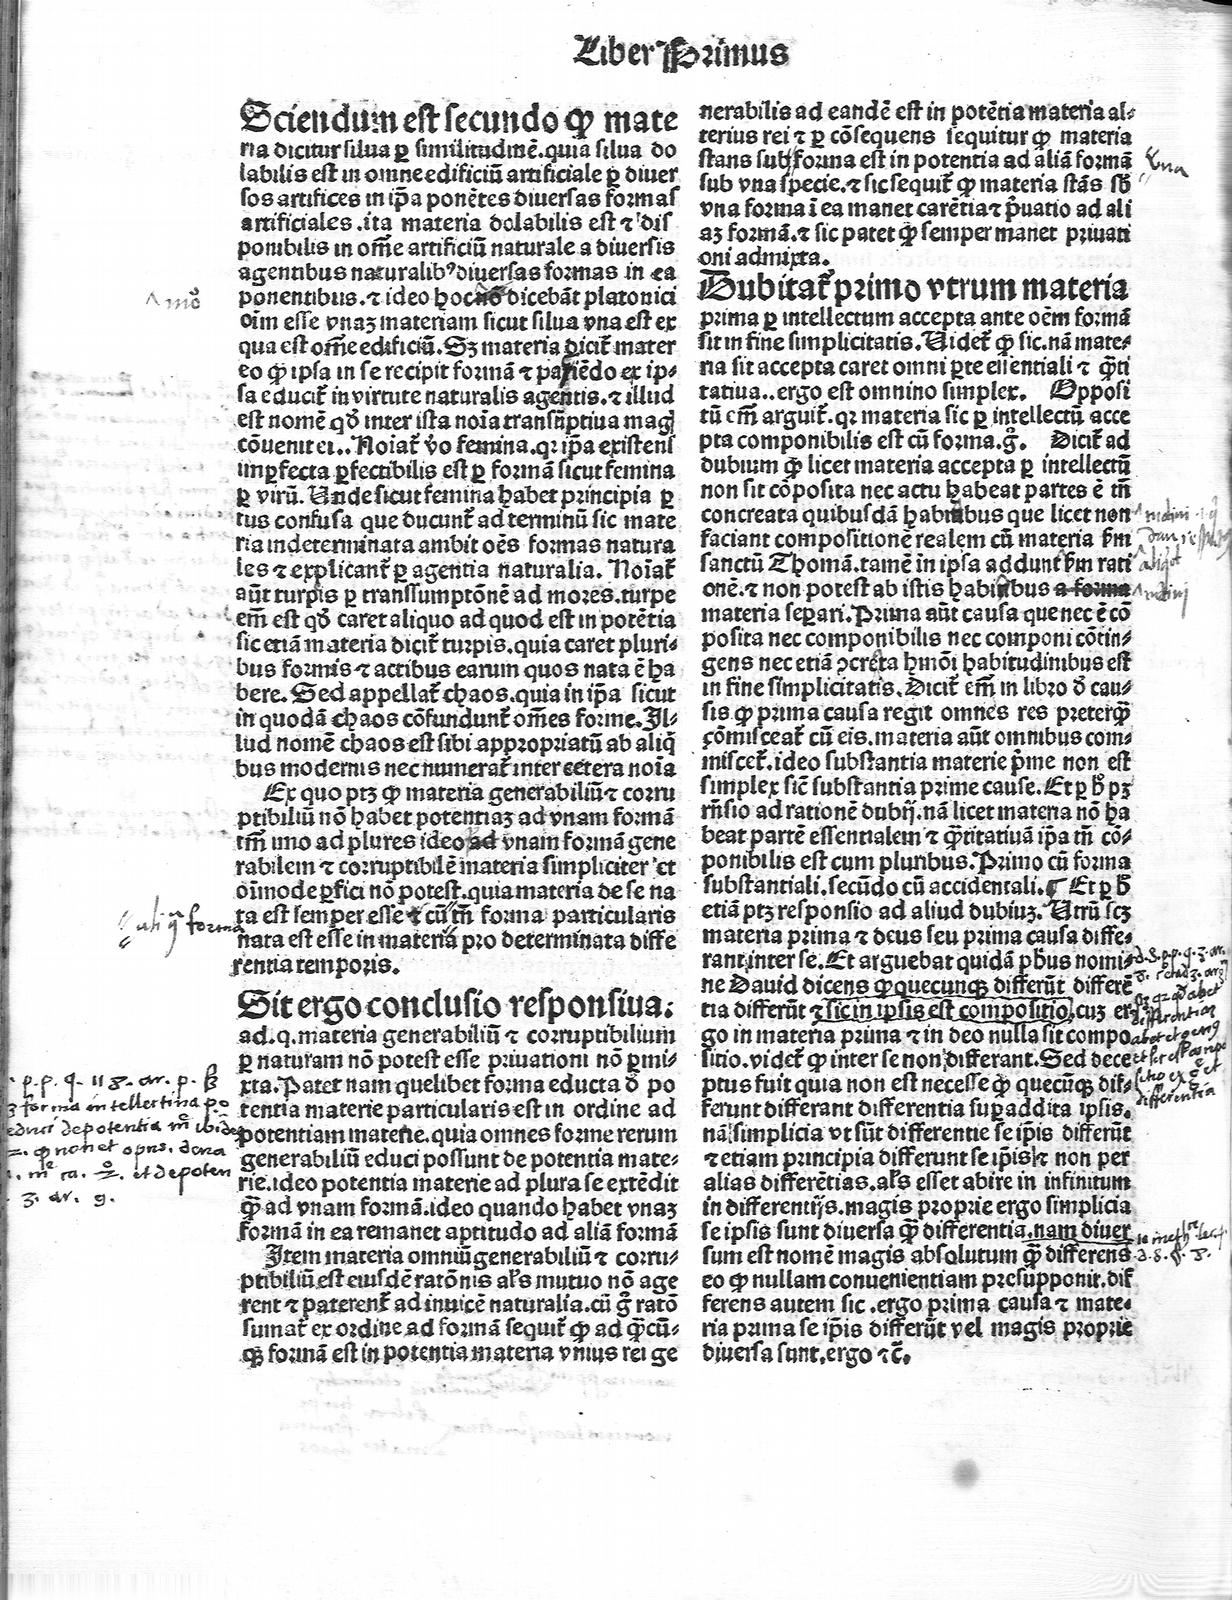 Liber Primus
Sciendum est secundo ꝙ mate
ria dicitur silua ꝑ similitudinē.quia silua do
labilis est in omne edificiū artificiale ꝑ diuer
sos artifices in ip̄a ponētes diuersas formas
artificiales.ita materia dolabilis est ⁊ dis
ponibilis in om̄e artificiū naturale a diuersis
agentibus naturalibꝰ diuersas formas in ea
ponentibus.⁊ ideo hoc dicebāt platonici
oīm esse vnaꝫ materiam sicut silua vna est ex
qua est om̄e edificiū.Sꝫ materia dicit̄ mater
eo ꝙ ipsa in se recipit formā ⁊ patiēdo ex ip⸗
sa educit̄ in virtute naturalis agentis.⁊ illud
est nomē qđ inter ista noīa transūptiua magꝭ
cōuenit ei..Noīat̄ v̄o femina.qꝛ ip̄a existens
imꝑfecta ꝑfectibilis est ꝑ formā sicut femina
ꝑ virū.Unde sicut femina habet principia ꝑ
tus confusa que ducunt̄ ad terminū sic mate
ria indeterminata ambit oēs formas natura
les ⁊ explicant̄ ꝑ agentia naturalia. Noīat̄
aūt turpis ꝑ transsumptōnē ad mores.turpe
em̄ est qđ caret aliquo ad quod est in potētia
sic etiā materia dicit̄ turpis.quia caret pluri⸗
bus formis ⁊ actibus earum quos nata ē ha
bere.Sed appellat̄ chaos.quia in ip̄a sicut
in quodā chaos cōfundunt̄ om̄es forme.Il⸗
lud nomē chaos est sibi appropriatū ab aliq̄
bus modernis nec numerat̄ inter cetera noīa
Ex quo ptꝫ ꝙ materia generabiliū ⁊ corru
ptibiliū nō habet potentiaꝫ ad vnam formā
tm̄ imo ad plures ideo ad vnam formā gene
rabilem ⁊ corruptibilē materia simpliciter et
oīmode ꝑfici nō potest.quia materia de se na
ta est semper esse ⁊ cū tm̄ forma particularis
nata est esse in materia pro determinata diffe
rentia temporis.
Sit ergo conclusio responsiua:
ad.q.materia generabiliū ⁊ corruptibilium
ꝑ naturam nō potest esse priuationi nō ꝑmi⸗
xta.Patet nam quelibet forma educta đ po
tentia materie particularis est in ordine ad
potentiam materie.quia omnes forme rerum
generabiliū educi possunt de potentia mate⸗
rie.ideo potentia materie ad plura se extēdit
ꝙ̄ ad vnam formā.ideo quando habet vnaꝫ
formā in ea remanet aptitudo ad aliā formā
Item materia omniū generabiliū ⁊ corru⸗
ptibiliū est eiusdē ratōnis al's mutuo nō age
rent ⁊ paterent̄ ad inuicē naturalia.cū g̊ ratō
sumat̄ ex ordine ad formā sequit̄ ꝙ ad q̄cū⸗
qꝫ formā est in potentia materia vnius rei ge
nerabilis ad eandē est in potētia materia al⸗
terius rei ⁊ ꝑ cōsequens sequitur ꝙ materia
stans sub forma est in potentia ad aliā formā
sub vna specie.⁊ sic sequit̄ ꝙ materia stās sb̄
vna forma ī ea manet carētia ⁊ p̄uatio ad ali
aꝫ formā.⁊ sic patet ꝙ semper manet priuati
oni admixta.
Dubitat̄ primo vtrum materia
prima ꝑ intellectum accepta ante oēm formā
sit in fine simplicitatis.Uidet̄ ꝙ sic.nā mate⸗
ria sit accepta caret omni ꝑte essentiali ⁊ q̄ti
tatiua..ergo est omnino simplex. Opposi
tū em̄ arguit̄.qꝛ materia sic ꝑ intellectū acce
pta componibilis est cū forma.g̊. Dicit̄ ad
dubium ꝙ licet materia accepta ꝑ intellectū
non sit cōposita nec actu habeat partes ē tn̄
concreata quibusdā habitibus que licet non
faciant compositionē realem cū materia ẜm
sanctū Thomā.tamē in ipsa addunt ẜm rati
onē.⁊ non potest ab istis habitibus a forma
materia seꝑari.Prima aūt causa que nec ē cō
posita nec componibilis nec componi cōtin⸗
gens nec etiā ꝯcreta hmōi habitudinibus est
in fine simplicitatis.Dicit̄ em̄ in libro đ cau⸗
sis ꝙ prima causa regit omnes res preterꝙ̄
cōmisceat̄ cū eis.materia aūt omnibus com⸗
miscet̄.ideo substantia materie p̄me non est
simplex sic̄ substantia prime cause.Et ꝑ ħ pꝫ
rn̄sio ad rationē dubij.nā licet materia nō ha
beat partē essentialem ⁊ q̄titatiuā ip̄a tn̄ cō⸗
ponibilis est cum pluribus.Primo cū forma
substantiali.secūdo cū accidentali.¶ Et ꝑ ħ
etiā ptꝫ responsio ad aliud dubiuꝫ.Utrū scꝫ
materia prima ⁊ deus seu prima causa diffe⸗
rant inter se.Et arguebat quidā ph̄us nomi⸗
ne Dauid dicens ꝙ quecunqꝫ differūt differē
tia differūt ⁊ sic in ipsis est compositio.cuꝫ er
go in materia prima ⁊ in deo nulla sit compo
sitio.videt̄ ꝙ inter se non differant.Sed dece
ptus fuit quia non est necesse ꝙ quecūqꝫ dif⸗
ferunt differant differentia suꝑaddita ipsis.
nā simplicia vt sūt differentie se ip̄is differūt
⁊ etiam principia differunt se ip̄is ⁊ non per
alias differētias.al's esset abire in infinitum
in differentijs.magis proprie ergo simplicia
se ipsis sunt diuersa ꝙ̄ differentia.nam diuer
sum est nomē magis absolutum ꝙ̄ differens
eo ꝙ nullam conuenientiam presupponit.dif
ferens autem sic.ergo prima causa ⁊ mate⸗
ria prima se ip̄is differūt vel magis proprie
diuersa sunt.ergo ⁊c̄.
vna
forma
differentia